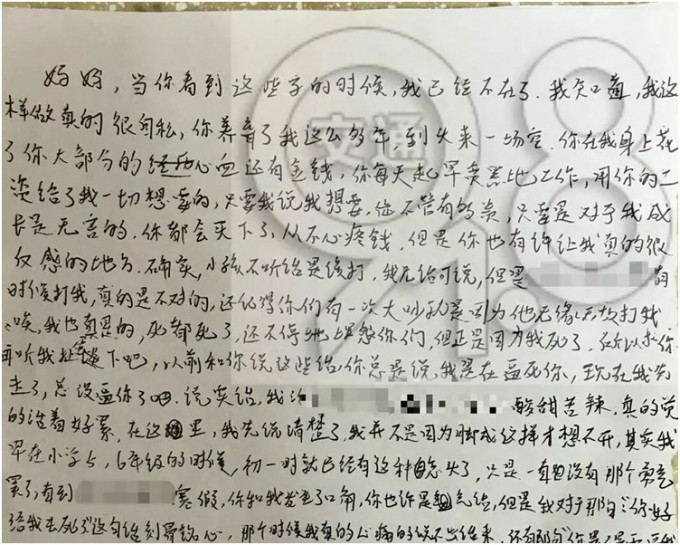 妈妈，当你看到这些字的时候，我已经不在了．我知道，我这
样做真的很自私，你养育了我这么多年，到头来一场空．你在我身上花
了你大部分的心血还有金钱，你每天起早卖黑地工作，用你的工
资给了我一切想要的，只要我说我想要，你不管有多贵，只要是对于我成
长是无害的．你都会买下了，从不心疼钱．但是你也有许让我真的很
反感的地方．确实，小孩不听话是该打．我无话可说，但是 有
时候打我，真的是不对的，还记得你们有一次大吵就是因为他无缘无故打我
唉，我也真是的，死都死了，还不停地埋怨你们，但正是因为我死了．所以求你
再听我 下吧，以前和你说这些话，你总是说我是在逼死你，现在我先
走了，总没逼你了吧．说实话，我 酸甜苦辣．真的说
的活着好累．在这里，我先说清楚了，我并不是因为脚成这样才想不开，其实我
早在小学5，6年级的时候，初一时就已经有这种 了，只是一直没有那个勇气
罢了，直到 寒假，你和我发生了口角，你也许是气话，但是我对于那句“你好
给我去死”这句话刻骨铭心，那个时候我真的心痛的说不出话来，还有那句
交通
91.8